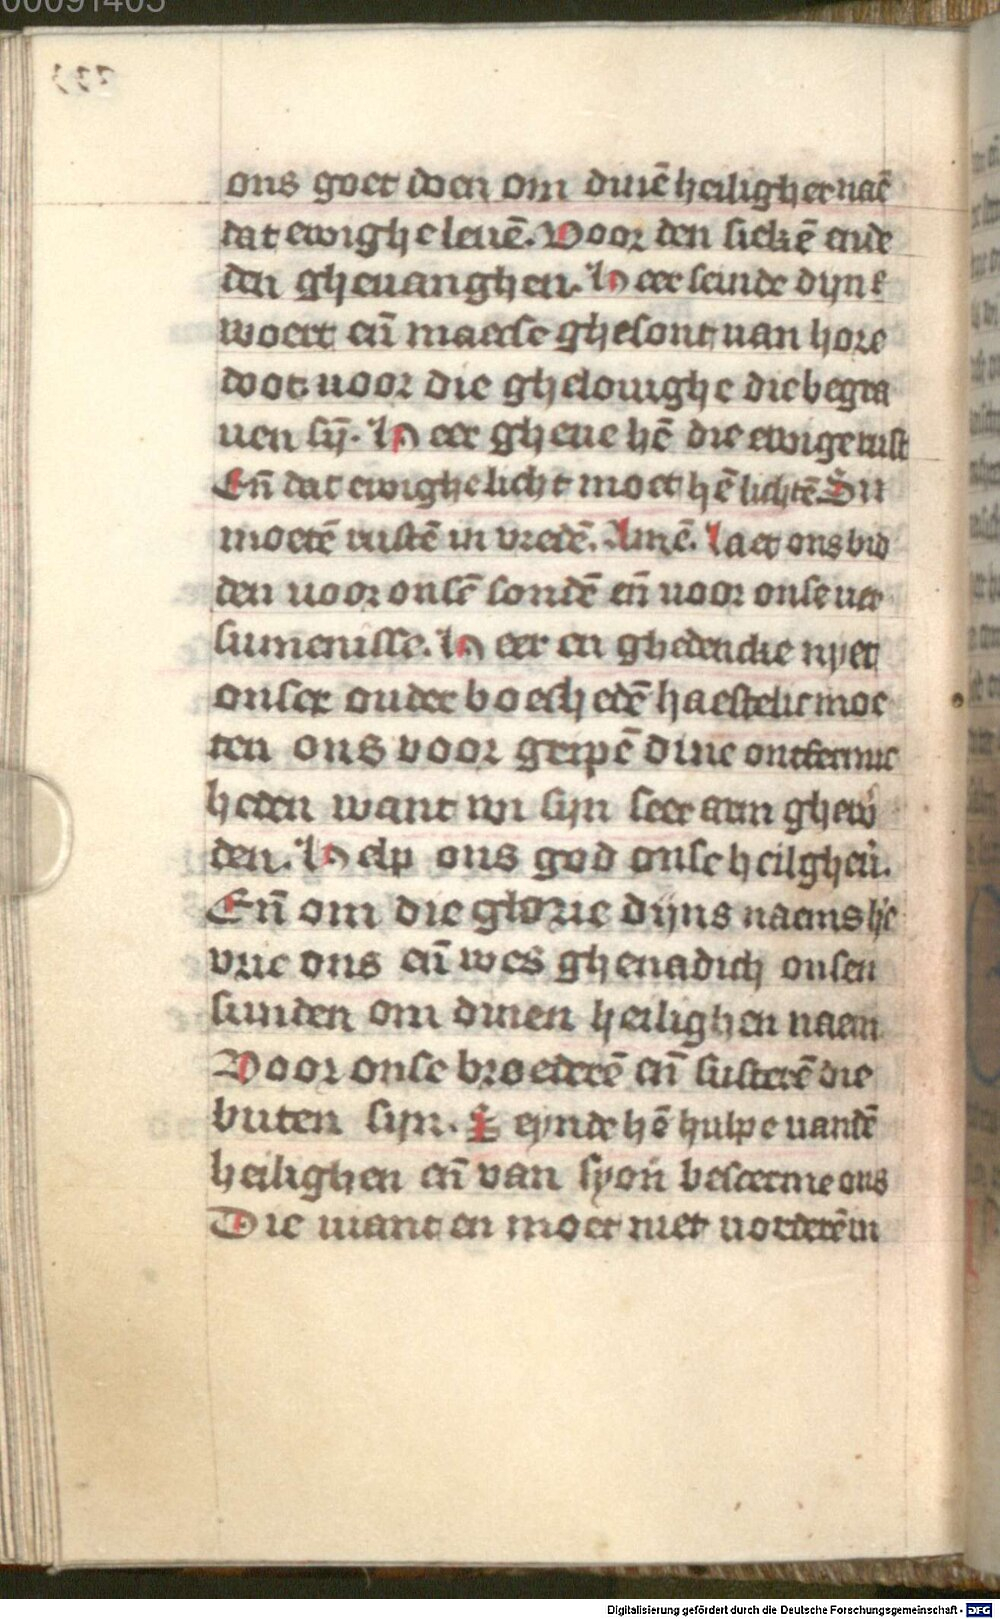 00091405
ons goet doen om dinē heiligher naē
dat ewighe leuē. Voor den siekē ende
den gheuanghen. Heer seinde dyn
woert eñ maecse ghesont van hore
doot uoor die ghelouighe die begra
uen sȳ. Heer gheue hē die ewige rust
Eñ dat ewighe licht moet hē lichtē Su
moetē rustē in vredē. Amē. Laet ons bid
den uoor onsē sondē eñ uoor onse uer
sumenisse. Heer en ghedencke nyet
onser ouder boeschedē haestelic moe
ten ons voor gripē dine ontfermic
heden want wi syn seer arm ghewo
den. Help ons god onse heilgheū.
Eñ om die glorie dyns naems hē
vrie ons eñ wes ghenadich onsen
sunden om dinen heilighen naem
Voor onse broederē eñ susterē die
buten syn. Seynde hē hulpe vandē
heilighen eñ van syon bescerme ons
Die viant en moet niet uorderē in
Digitalisierung gefördert durch die Deutsche Forschungsgemeinschaft - DFG